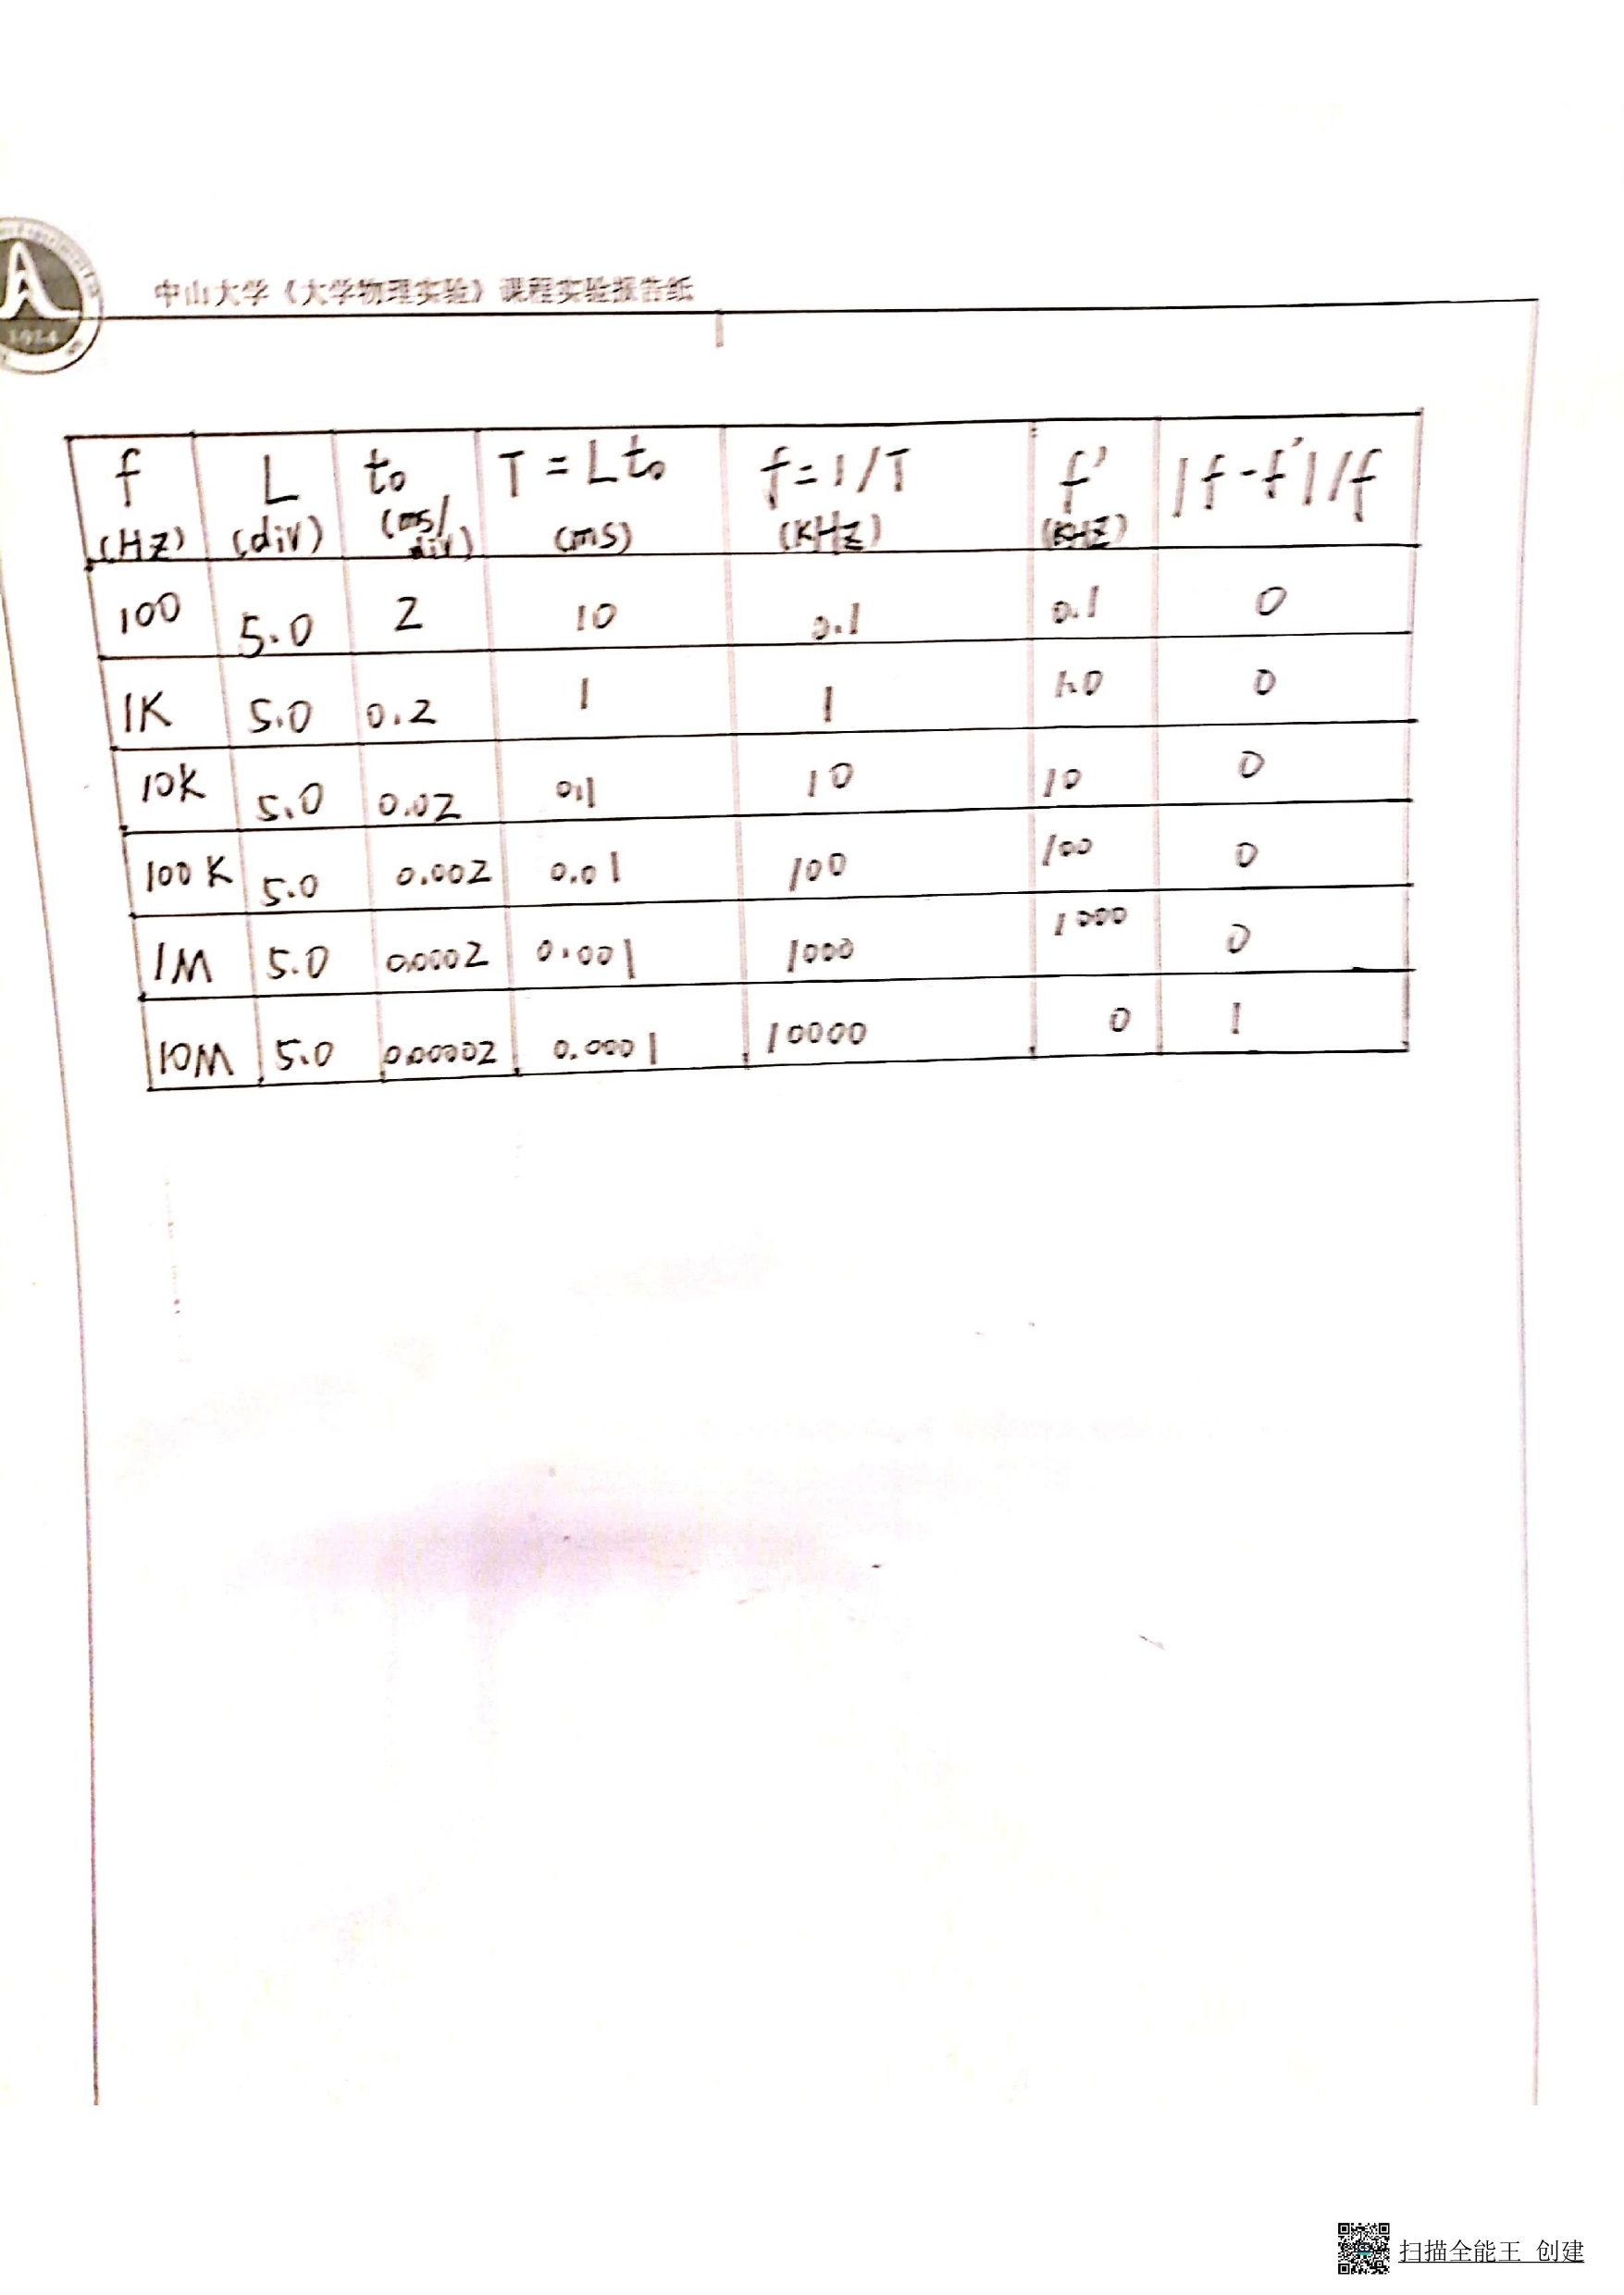 1924
中山大学《大学物理实验》课程实验报告纸
f (Hz) L (div) t₀ (ms/div) T=Lt₀ (ms) f=1/T (KHz) f' (KHz) |f-f'|/f
100 5.0 2 10 0.1 0.1 0
1K 5.0 0.2 1 1 1.0 0
10K 5.0 0.02 0.1 10 10 0
100K 5.0 0.002 0.01 100 100 0
1M 5.0 0.0002 0.001 1000 1000 0
10M 5.0 0.00002 0.0001 10000 0 1
扫描全能王 创建